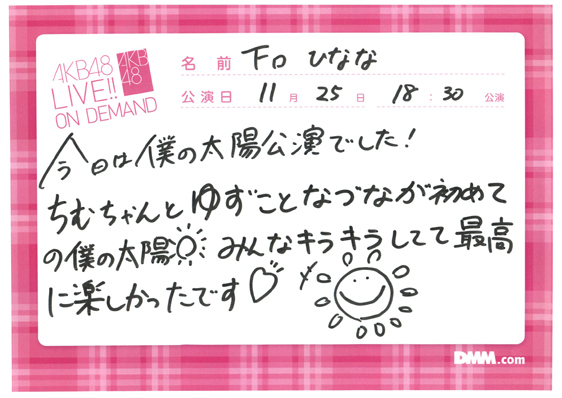 AKB48
LIVE!!
ON DEMAND
AKB
48
名前 下口 ひなな
公演日 11月 25日 18:30 公演
今日は僕の太陽公演でした!
ちむちゃんとゆずことなづなが初めて
の僕の太陽 みんなキラキラしてて最高
に楽しかったです
DMM.com